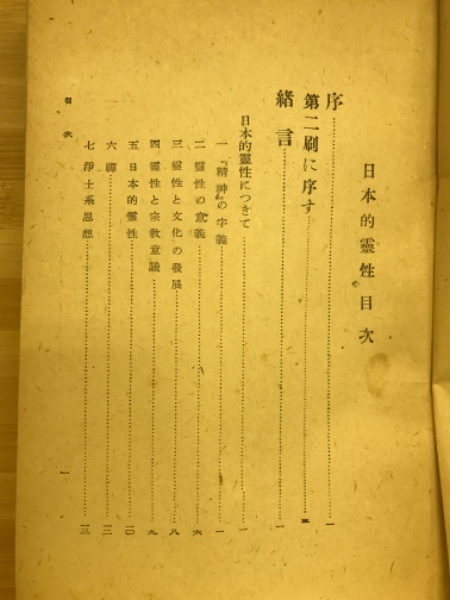 日本的靈性目次
序……一
第二刷に序す……三
緒言……一
日本的靈性につきて……一
一 『精神』の字義……一
二 靈性の意義……六
三 靈性と文化の發展……八
四 靈性と宗敎意識……九
五 日本的靈性……一〇
六 禪……一二
七 淨土系思想……一三
目次
一